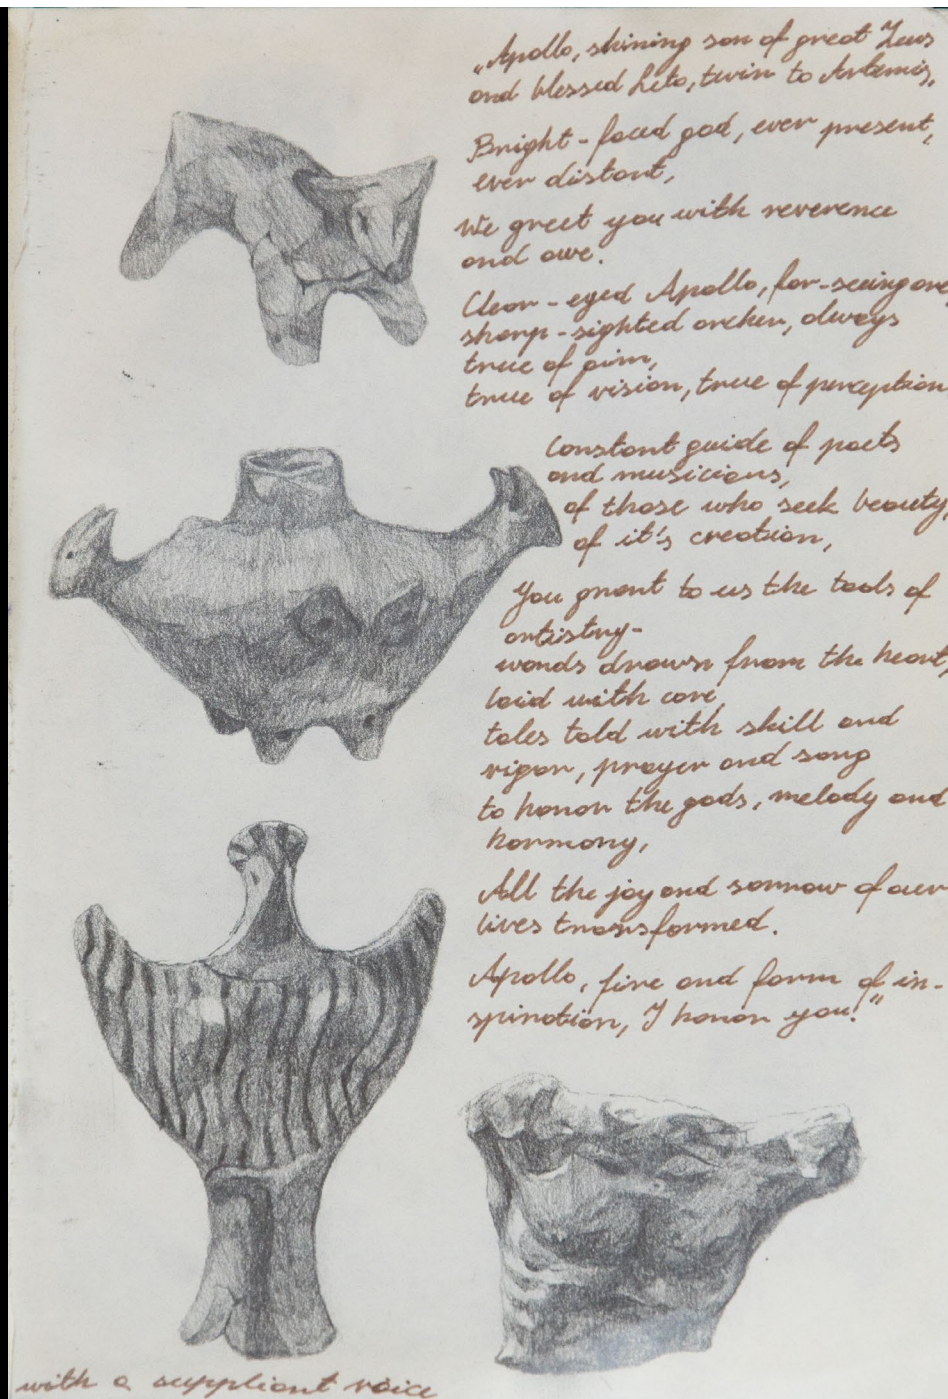 „Apollo, shining son of great Zeus
and blessed Leto, twin to Artemis,
Bright-faced god, ever present,
ever distant,
We greet you with reverence
and awe.
Clear-eyed Apollo, far-seeing one
sharp-sighted archer, always
true of aim,
true of vision, true of perception
Constant guide of poets
and musicians,
of those who seek beauty,
of it's creation,
You grant to us the tools of
artistry-
words drawn from the heart,
laid with care,
tales told with skill and
rigor, prayer and song
to honor the gods, melody and
harmony,
All the joy and sorrow of our
lives transformed.
Apollo, fire and form of in-
spiration, I honor you!"
with a suppliant voice